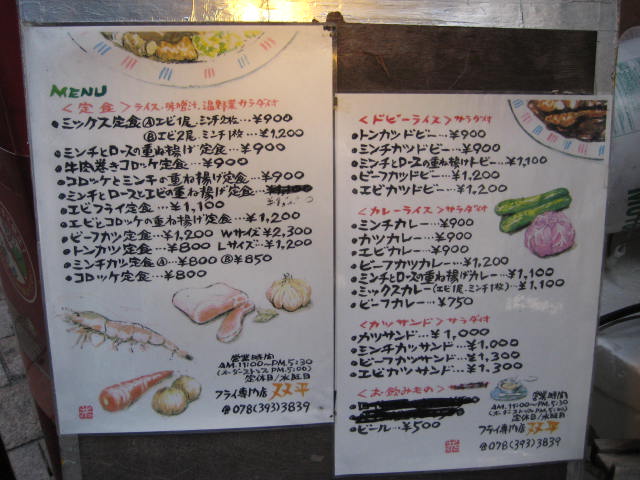 MENU
<定食>ライス・味噌汁、温野菜サラダ付
・ミックス定食Ⓐエビ1尾、ミンチ2枚…¥900
Ⓑエビ2尾、ミンチ1枚…¥1,200
・ミンチとロースの重ね揚げ定食…¥900
・牛肉巻きコロッケ定食…¥900
・コロッケとミンチの重ね揚げ定食…¥900
・ミンチとロースとエビの重ね揚げ定食…
・エビフライ定食…¥1,100
・エビとコロッケの重ね揚げ定食…¥1,200
・ビーフカツ定食…¥1,200 Wサイズ¥2,300
・トンカツ定食…¥800 Lサイズ¥1,200
・ミンチカツ定食Ⓐ…¥800 Ⓑ¥850
・コロッケ定食…¥800
営業時間
AM.11:00~PM.5:30
(オーダーストップPM.5:00)
定休日/水曜日
フライ専門店 双平
☎078(393)3839
<ドビーライス>サラダ付
・トンカツドビー…¥900
・ミンチカツドビー…¥900
・ミンチとロースの重ね揚げドビー…¥1,100
・ビーフカツドビー…¥1,200
・エビカツドビー…¥1,200
<カレーライス>サラダ付
・ミンチカレー…¥900
・カツカレー…¥900
・エビカレー…¥900
・ビーフカツカレー…¥1,200
・ミンチとロースの重ね揚げカレー…¥1,100
・ミックスカレー(エビ1尾、ミンチ1枚)…¥1,100
・ビーフカレー…¥750
<カツサンド>サラダ付
・カツサンド…¥1,000
・ミンチカツサンド…¥1,000
・ビーフカツサンド…¥1,300
・エビカツサンド…¥1,300
<お飲みもの>
・ビール…¥500
営業時間
AM.11:00~PM.5:30
(オーダーストップPM.5:00)
定休日/水曜日
フライ専門店 双平
☎078(393)3839